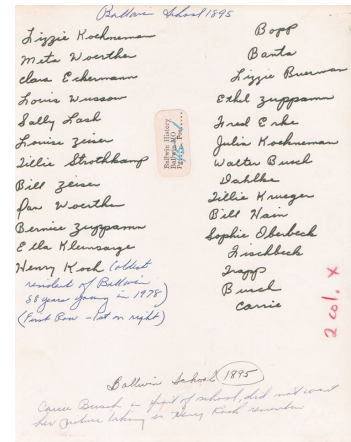 Ballwin School 1895
Lizzie Kochneman
Meta Woerther
Clara Eckermann
Louis Wusson
Sally Lash
Louise Zeiser
Tillie Strothkamp
Bill Zeiser
Dan Woerther
Bernice Zuppann
Ella Kleinsarge
Henry Koch (oldest
resident of Ballwin
88 years young in 1978)
(First Row - 1st on right)
Ballwin History
Ballwin, MO
Bopp
Banta
Lizzie Buerman
Ethel Zuppann
Fred Erke
Julia Kochneman
Walter Busch
Dahlke
Tillie Krueger
Bill Hain
Sophie Oberbeck
Fischbeck
Trapp
Busch
Carrie
2 col. x
Ballwin School 1895
Carrie Busch in front of school, did not want
her picture taken as Henry Koch remembers